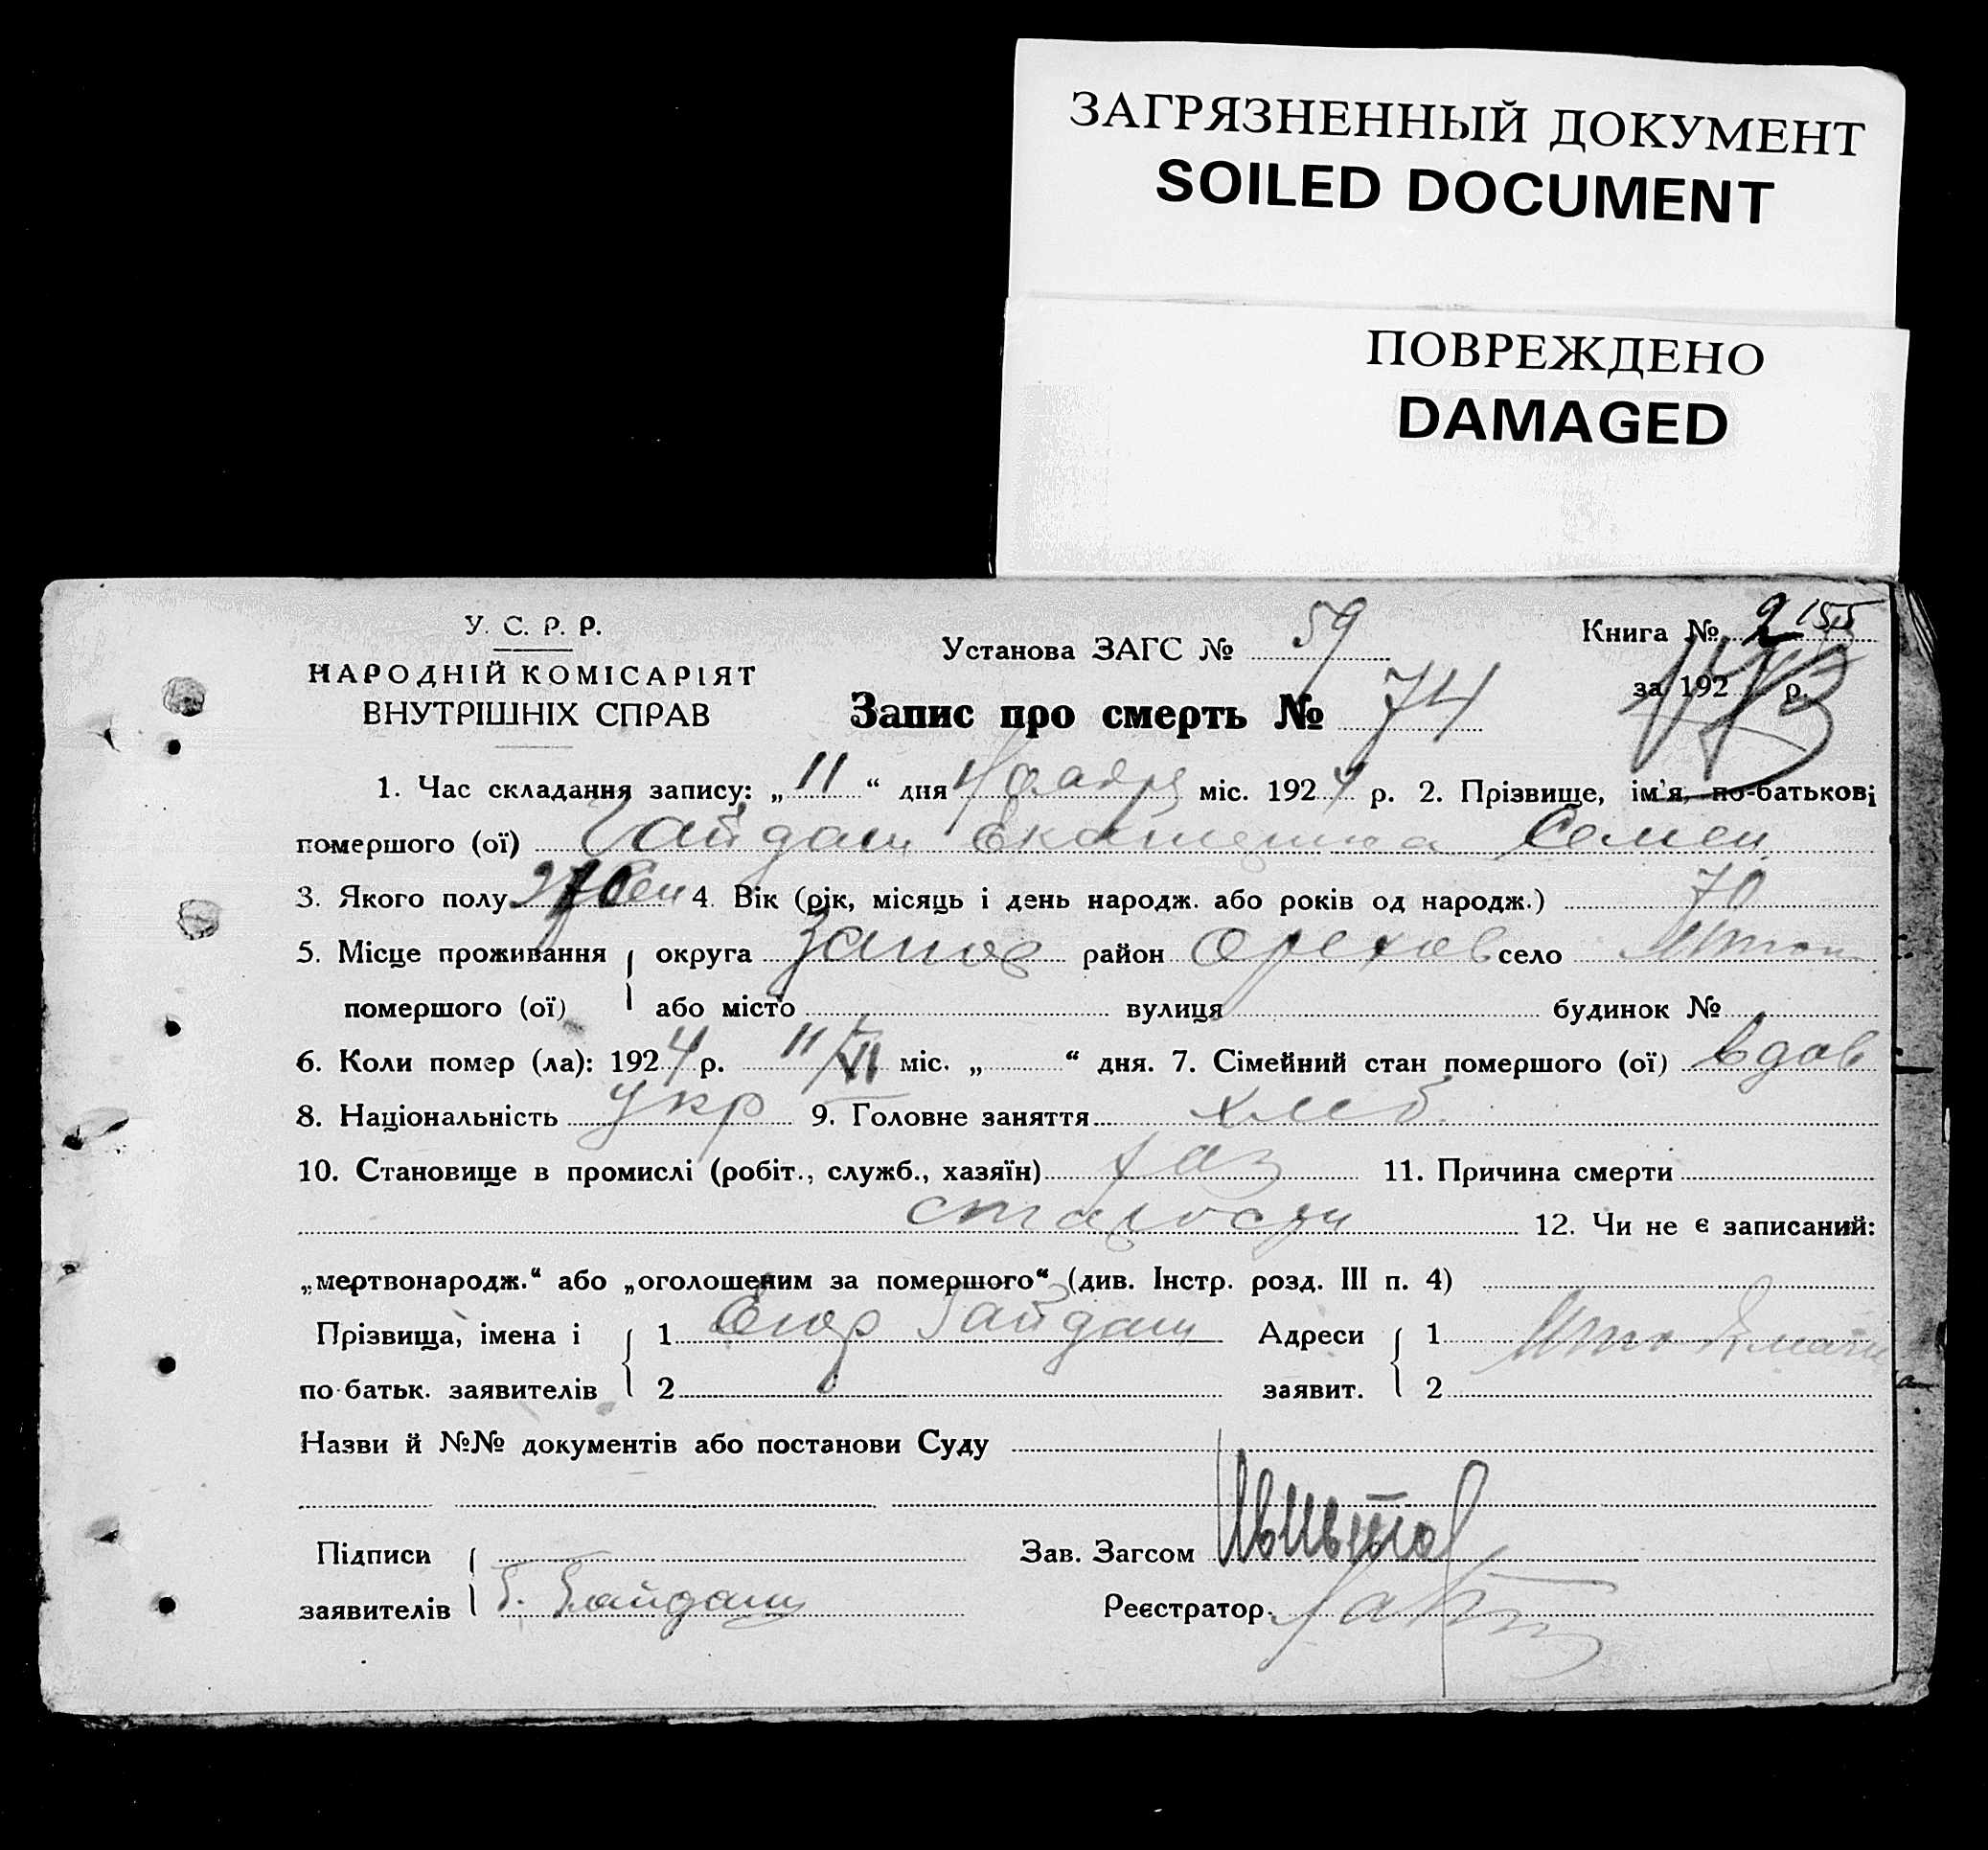 ЗАГРЯЗНЕННЫЙ ДОКУМЕНТ
SOILED DOCUMENT
ПОВРЕЖДЕНО
DAMAGED
У. С. Р. Р.
НАРОДНІЙ КОМІСАРІЯТ
ВНУТРІШНІХ СПРАВ
Установа ЗАГС № 59
Книга № 2 155
за 192 р.
Запис про смерть № 74
1. Час складання запису: „ 11 “ дня Ноября міс. 1924 р. 2. Прізвище, ім'я, по-батькові
помершого (ої) Гайдаш Екатерина Семен
3. Якого полу 4. Вік (рік, місяць і день народж. або років од народж.) 70
5. Місце проживання округа Запор район Орехов село
помершого (ої) або місто вулиця будинок №
6. Коли помер (ла): 1924 р. 11/ міс. „ “ дня. 7. Сімейний стан помершого (ої) вдов
8. Національність укр 9. Головне заняття хлеб.
10. Становище в промислі (робіт., служб., хазяїн) хаз 11. Причина смерти
старости 12. Чи не є записаний:
„мертвонародж.“ або „оголошеним за помершого“ (див. Інстр. розд. III п. 4)
Прізвища, імена і 1 Егор Гайдаш Адреси 1
по-батьк. заявителів 2 заявит. 2
Назви й №№ документів або постанови Суду
Підписи Зав. Загсом
заявителів Г. Гайдаш Реєстратор